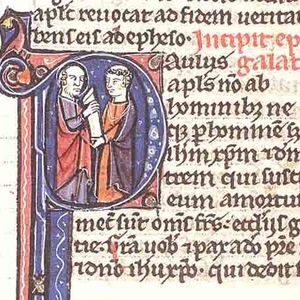 apl's reuocat ad fidem uerita
tens eis ad epheso. Incipit ep
Aulus galat
apl's nō ab
hominibz ne
qz p hominē s
ihm xpm ⁊ dm
trem qui susc
eum a mortui
mecū sunt om̄s frs. ecclijs g
tie. grā uob ⁊ pax a do pre
⁊ dno ihu xpo. qui dedit